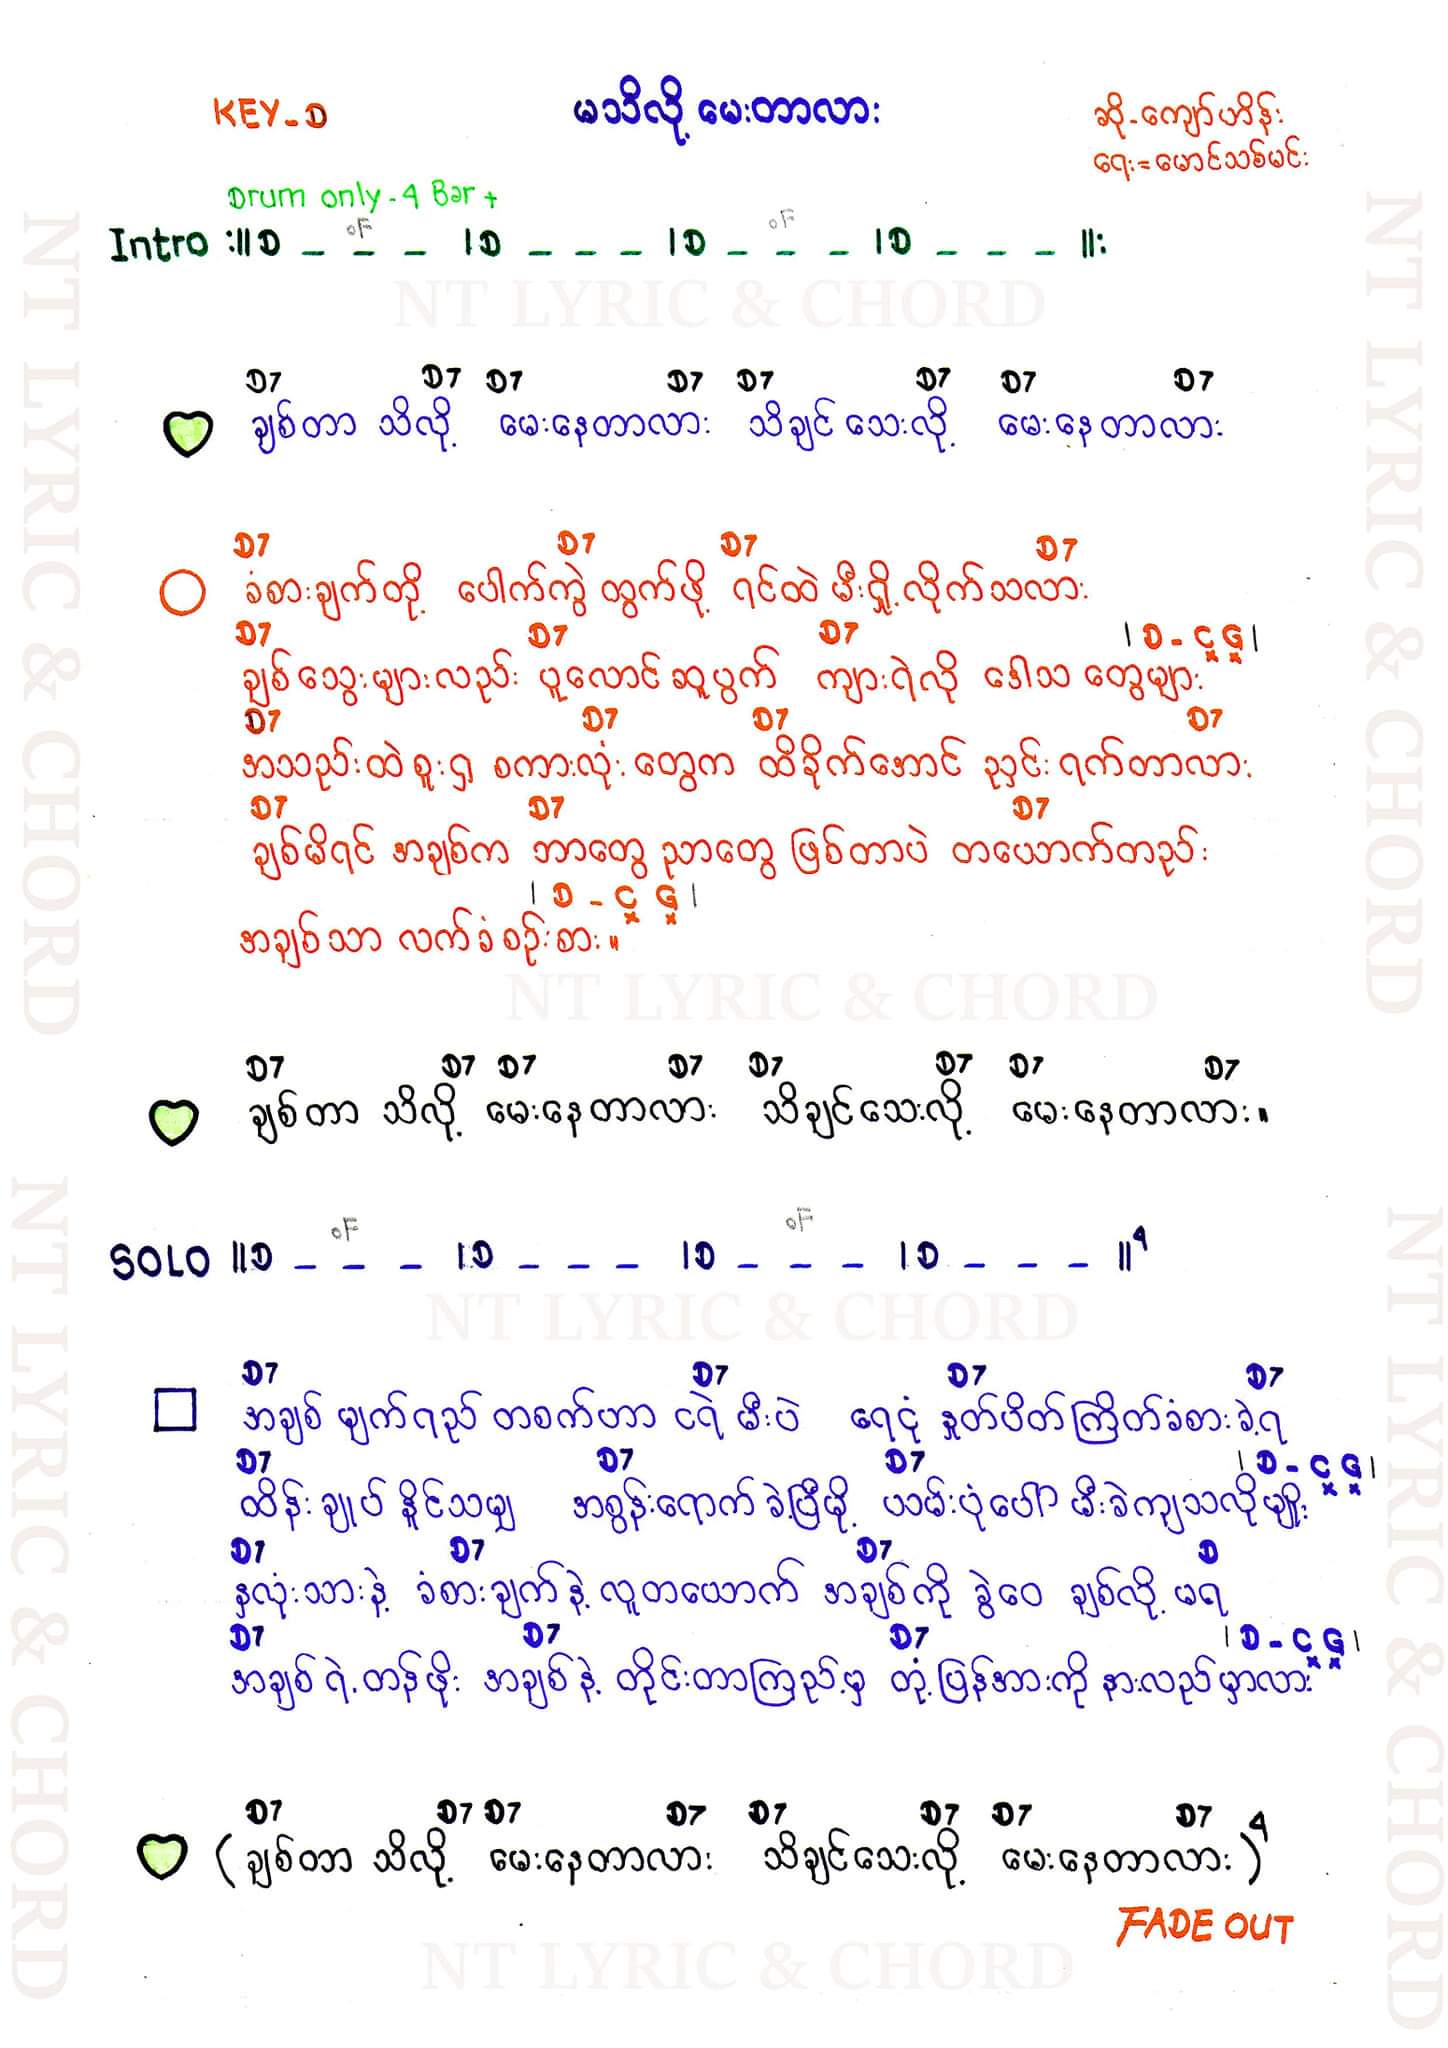 KEY - D
မသိလို့ မေးတာလား
ဆို - ကျော်ဟိန်း
ရေး = မောင်သစ်မင်း
Drum only - 4 Bar +
oF oF
Intro :||D _ _ _ |D _ _ _ |D _ _ _ |D _ _ _ ||:
NT LYRIC & CHORD
D7 D7 D7 D7 D7 D7 D7 D7
ချစ်တာ သိလို့ မေးနေတာလား သိချင်သေးလို့ မေးနေတာလား
D7 D7 D7 D7
ခံစားချက်တို့ ပေါက်ကွဲ ထွက်ဖို့ ရင်ထဲ မီးရှို့လိုက်သလား
D7 D7 D7 | D - C G |
ချစ်သွေးများလည်း ပူလောင် ဆူပွက် ကျားရဲလို ဒေါသ တွေများ
D7 D7 D7 D7
အသည်းထဲ စူးရှ စကားလုံး တွေက ထိခိုက်အောင် ညှင်း ရက်တာလား
D7 D7 D7
ချစ်မိရင် အချစ်က ဘာတွေ ညာတွေ ဖြစ်တာပဲ တယောက်တည်း
| D - C G |
အချစ်သာ လက်ခံ စဉ်းစား။
NT LYRIC & CHORD
D7 D7 D7 D7 D7 D7 D7 D7
ချစ်တာ သိလို့ မေးနေတာလား သိချင်သေးလို့ မေးနေတာလား။
oF oF
SOLO ||D _ _ _ |D _ _ _ |D _ _ _ |D _ _ _ ||4
NT LYRIC & CHORD
D7 D7 D7 D7
အချစ် မျက်ရည် တစက်ဟာ ငရဲ မီးပဲ ရေငုံ နှုတ်ပိတ် ကြိတ်ခံစားခဲ့ရ
D7 D7 D7 | D - C G |
ထိန်း ချုပ် နိူင်သမျှ အစွန်းရောက် ခဲ့ပြီမို့ ယမ်းပုံပေါ် မီးခဲကျသလိုမျိုး
D7 D7 D7 D
နှလုံးသားနဲ့ ခံစားချက်နဲ့ လူတယောက် အချစ်ကို ခွဲဝေ ချစ်လို့ မရ
D7 D7 D7 | D - C G |
အချစ်ရဲ့ တန်ဖိုး အချစ်နဲ့ တိုင်းတာကြည့်မှ တုံ့ပြန်အားကို နားလည်မှာလား
D7 D7 D7 D7 D7 D7 D7 D7
(ချစ်တာ သိလို့ မေးနေတာလား သိချင်သေးလို့ မေးနေတာလား)4
FADE OUT
NT LYRIC & CHORD
NT LYRIC & CHORD
NT LYRIC & CHORD
NT LYRIC & CHORD
NT LYRIC & CHORD